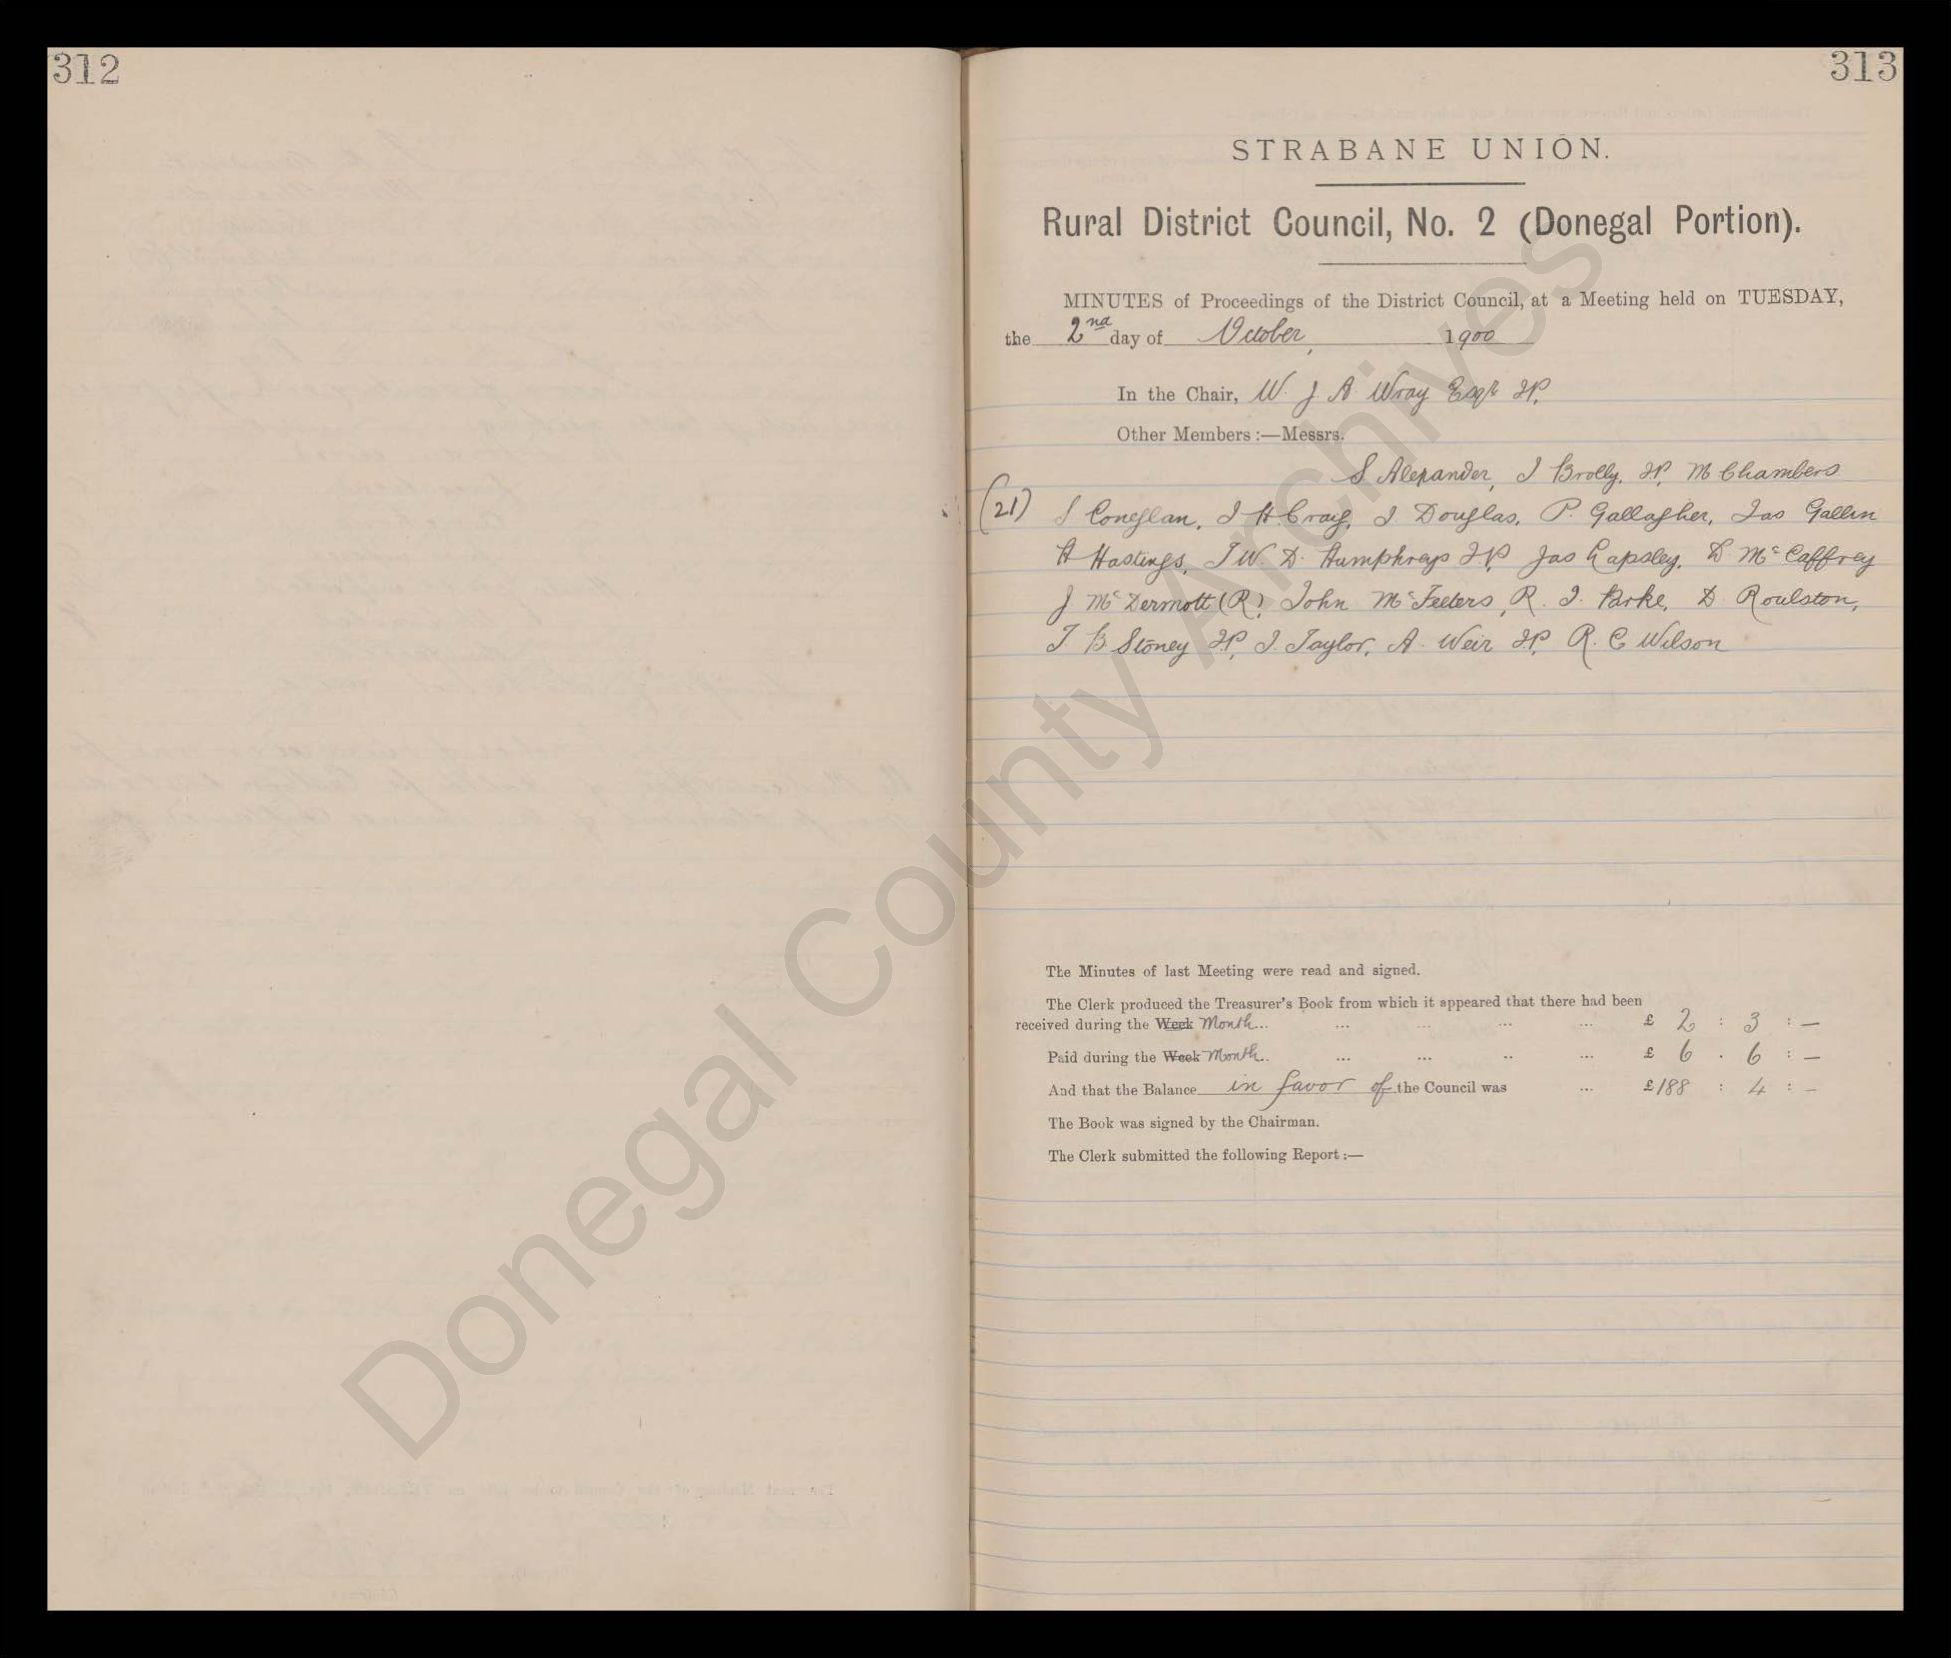 312
313
STRABANE UNION.
Rural District Council, No. 2 (Donegal Portion).
MINUTES of Proceedings of the District Council, at a Meeting held on TUESDAY,
the 2nd day of October, 1900
In the Chair, W. J A Wray Esqr JP.
Other Members :—Messrs.
S Alexander, J Brolly, JP, M Chambers
(21) S Coneglan, J H Craig, J Douglas, P. Gallagher, Jas Gallen
A Hastings, T W. D. Humphreys JP, Jas Lapsley, D McCaffrey
J McDermott (R), John McFeeters, R. J. Parke, D Roulston,
T. B Stoney JP, J. Taylor, A. Weir JP, R. C Wilson
The Minutes of last Meeting were read and signed.
The Clerk produced the Treasurer's Book from which it appeared that there had been
received during the Week Month... ... ... ... ... £ 2 : 3 : —
Paid during the Week Month.. ... ... .. ... £ 6 . 6 : —
And that the Balance in favor of the Council was ... £188 : 4 : —
The Book was signed by the Chairman.
The Clerk submitted the following Report :—
Donegal County Archives